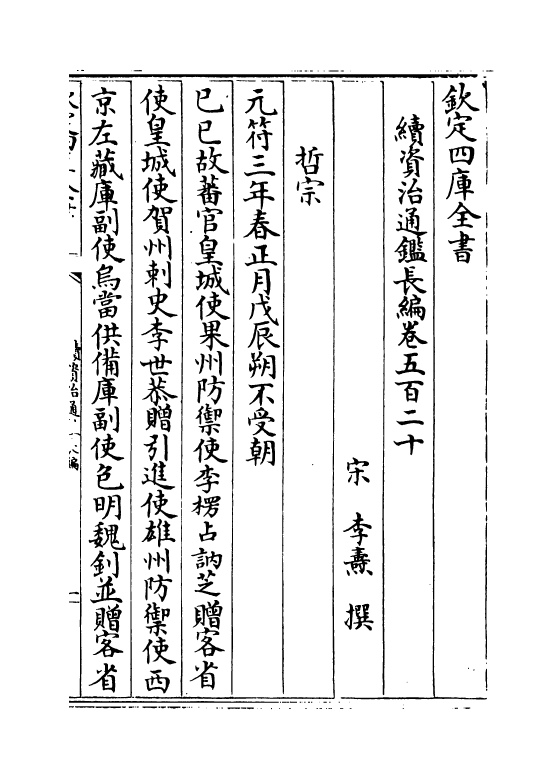 欽定四庫全書
續資治通鑑長編卷五百二十
宋 李燾 撰
哲宗
元符三年春正月戊辰朔不受朝
已巳故蕃官皇城使果州防禦使李楞占訥芝贈客省
使皇城使賀州刺史李世恭贈引進使雄州防禦使西
京左藏庫副使烏當供備庫副使色明魏釗並贈客省